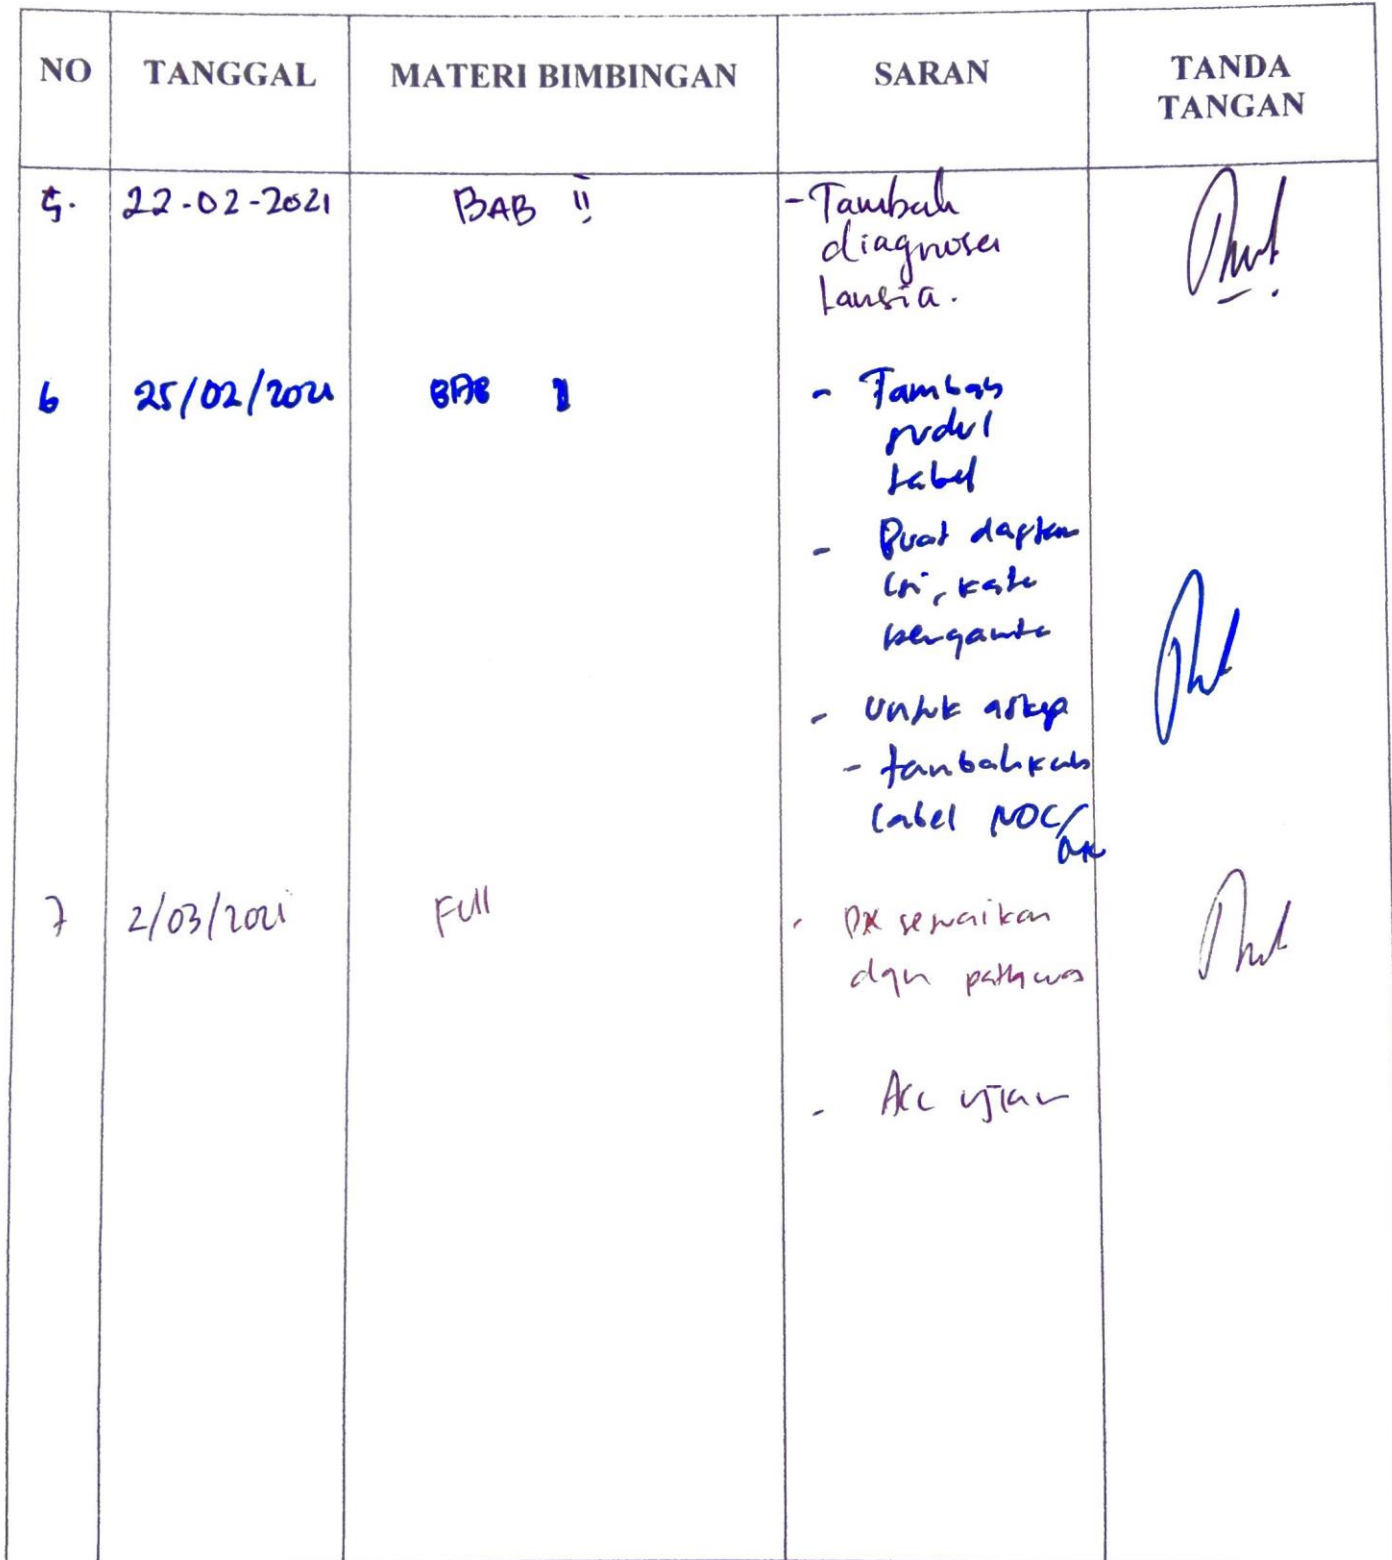 NO TANGGAL MATERI BIMBINGAN SARAN TANDA
TANGAN
5. 22-02-2021 BAB II - Tambah
diagnosa
lansia.
6 25/02/2021 BAB - Tambah
judul
tabel
- Buat daftar
isi, kata
pengantar
- Untuk askep
- tambahkan
label NOC/
7 2/03/2021 Full - DX sesuaikan
dgn pathway
- Acc ujian